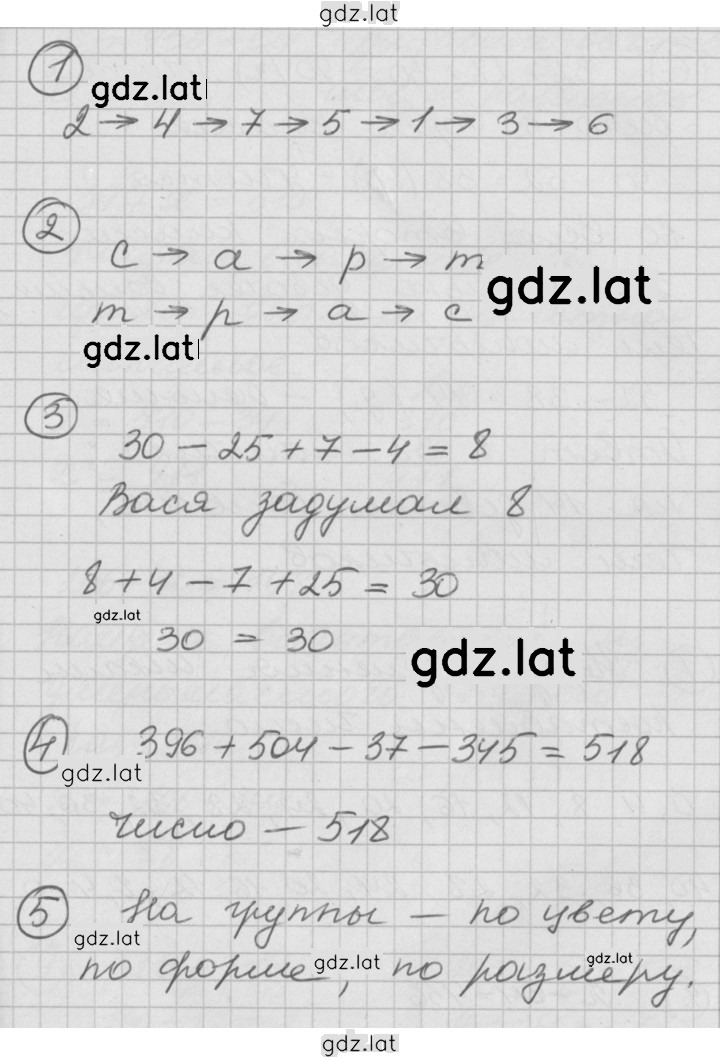 gdz.lat
1
gdz.lat
2 → 4 → 7 → 5 → 1 → 3 → 6
2
с → а → р → т
gdz.lat
т → р → а → с
gdz.lat
3
30 - 25 + 7 - 4 = 8
Вася задумал 8
8 + 4 - 7 + 25 = 30
gdz.lat
30 = 30
gdz.lat
4
396 + 504 - 37 - 345 = 518
gdz.lat
число - 518
5
На группы - по цвету,
gdz.lat
по форме, по размеру.
gdz.lat
gdz.lat
gdz.lat